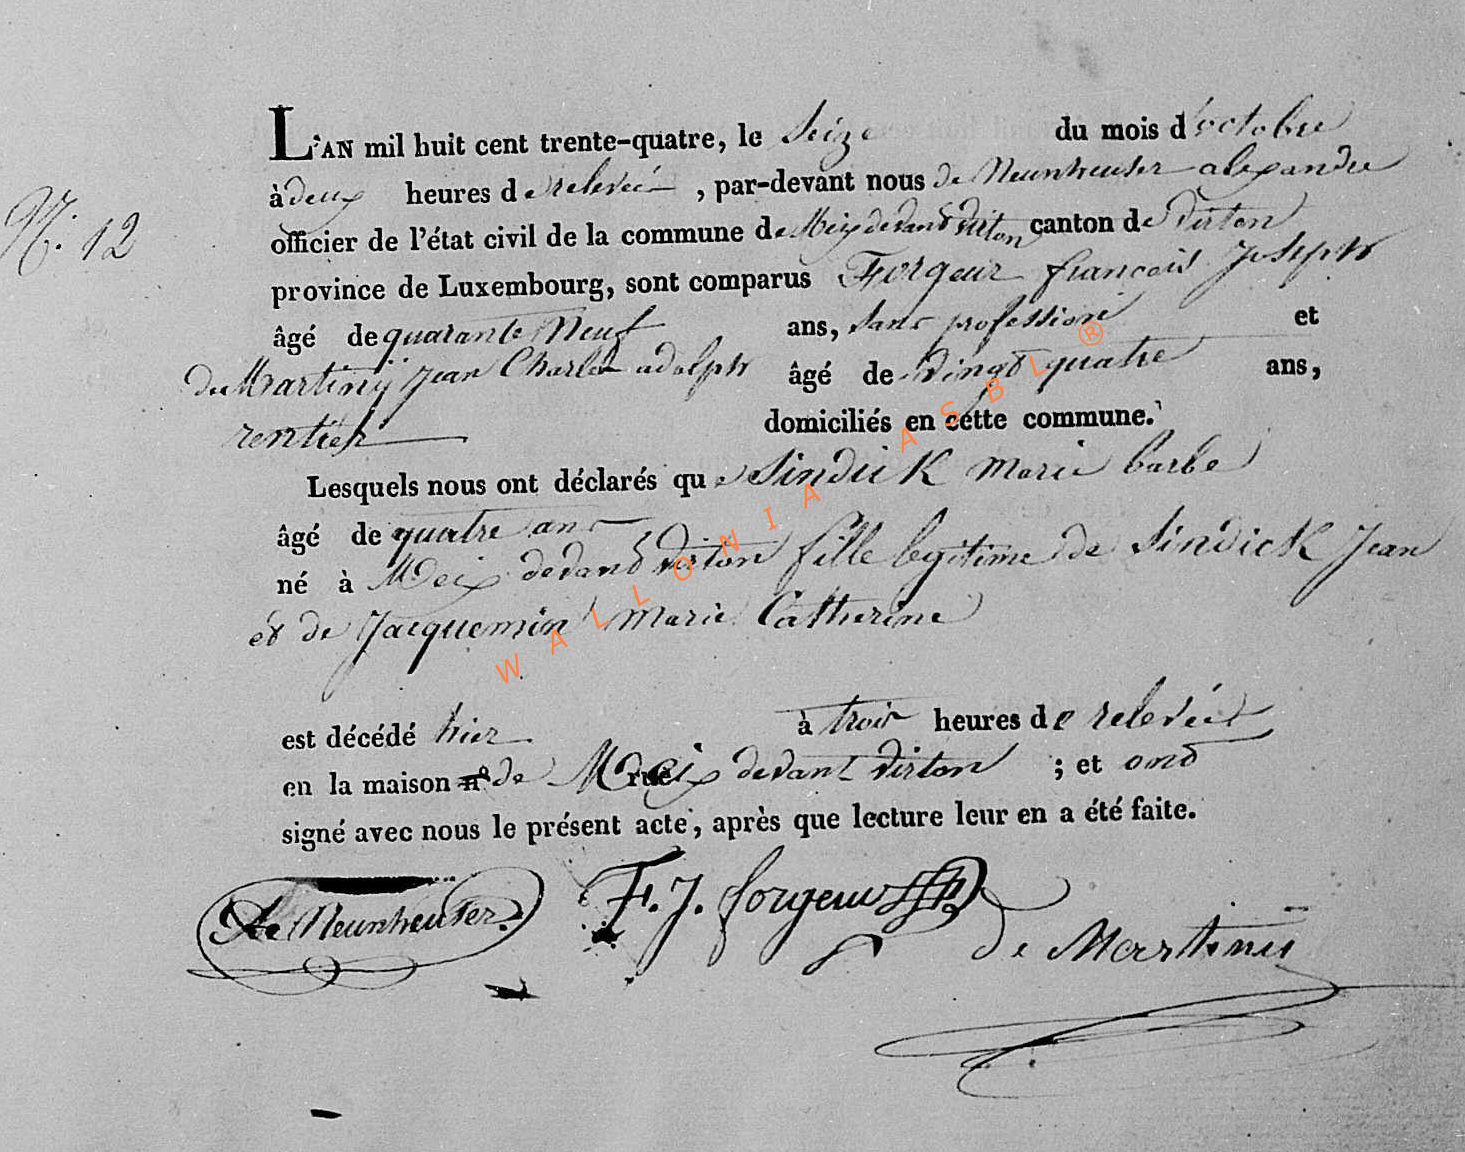 N.º 12
L'AN mil huit cent trente-quatre, le Seize du mois d'octobre
à deux heures de relevée, par-devant nous de Neunheuser alexandre
officier de l'état civil de la commune de Meix devant Virton canton de Virton
province de Luxembourg, sont comparus Forgeur françois Joseph
âgé de quarante Neuf ans, Sans profession et
de Martiny Jean Charles adolph âgé de vingt quatre ans,
rentier domiciliés en cette commune.
Lesquels nous ont déclarés que Sindick Marie barbe
âgé de quatre ans
né à Meix devant virton fille legitime de Sindick Jean
et de Jacquemin Marie Catherine
est décédé hier à trois heures de relevée
en la maison nº de Meix rue devant Virton ; et ont
signé avec nous le présent acte, après que lecture leur en a été faite.
De Neunheuser. F. J. forgeur
de Martiny
WALLONIA ASBL ®